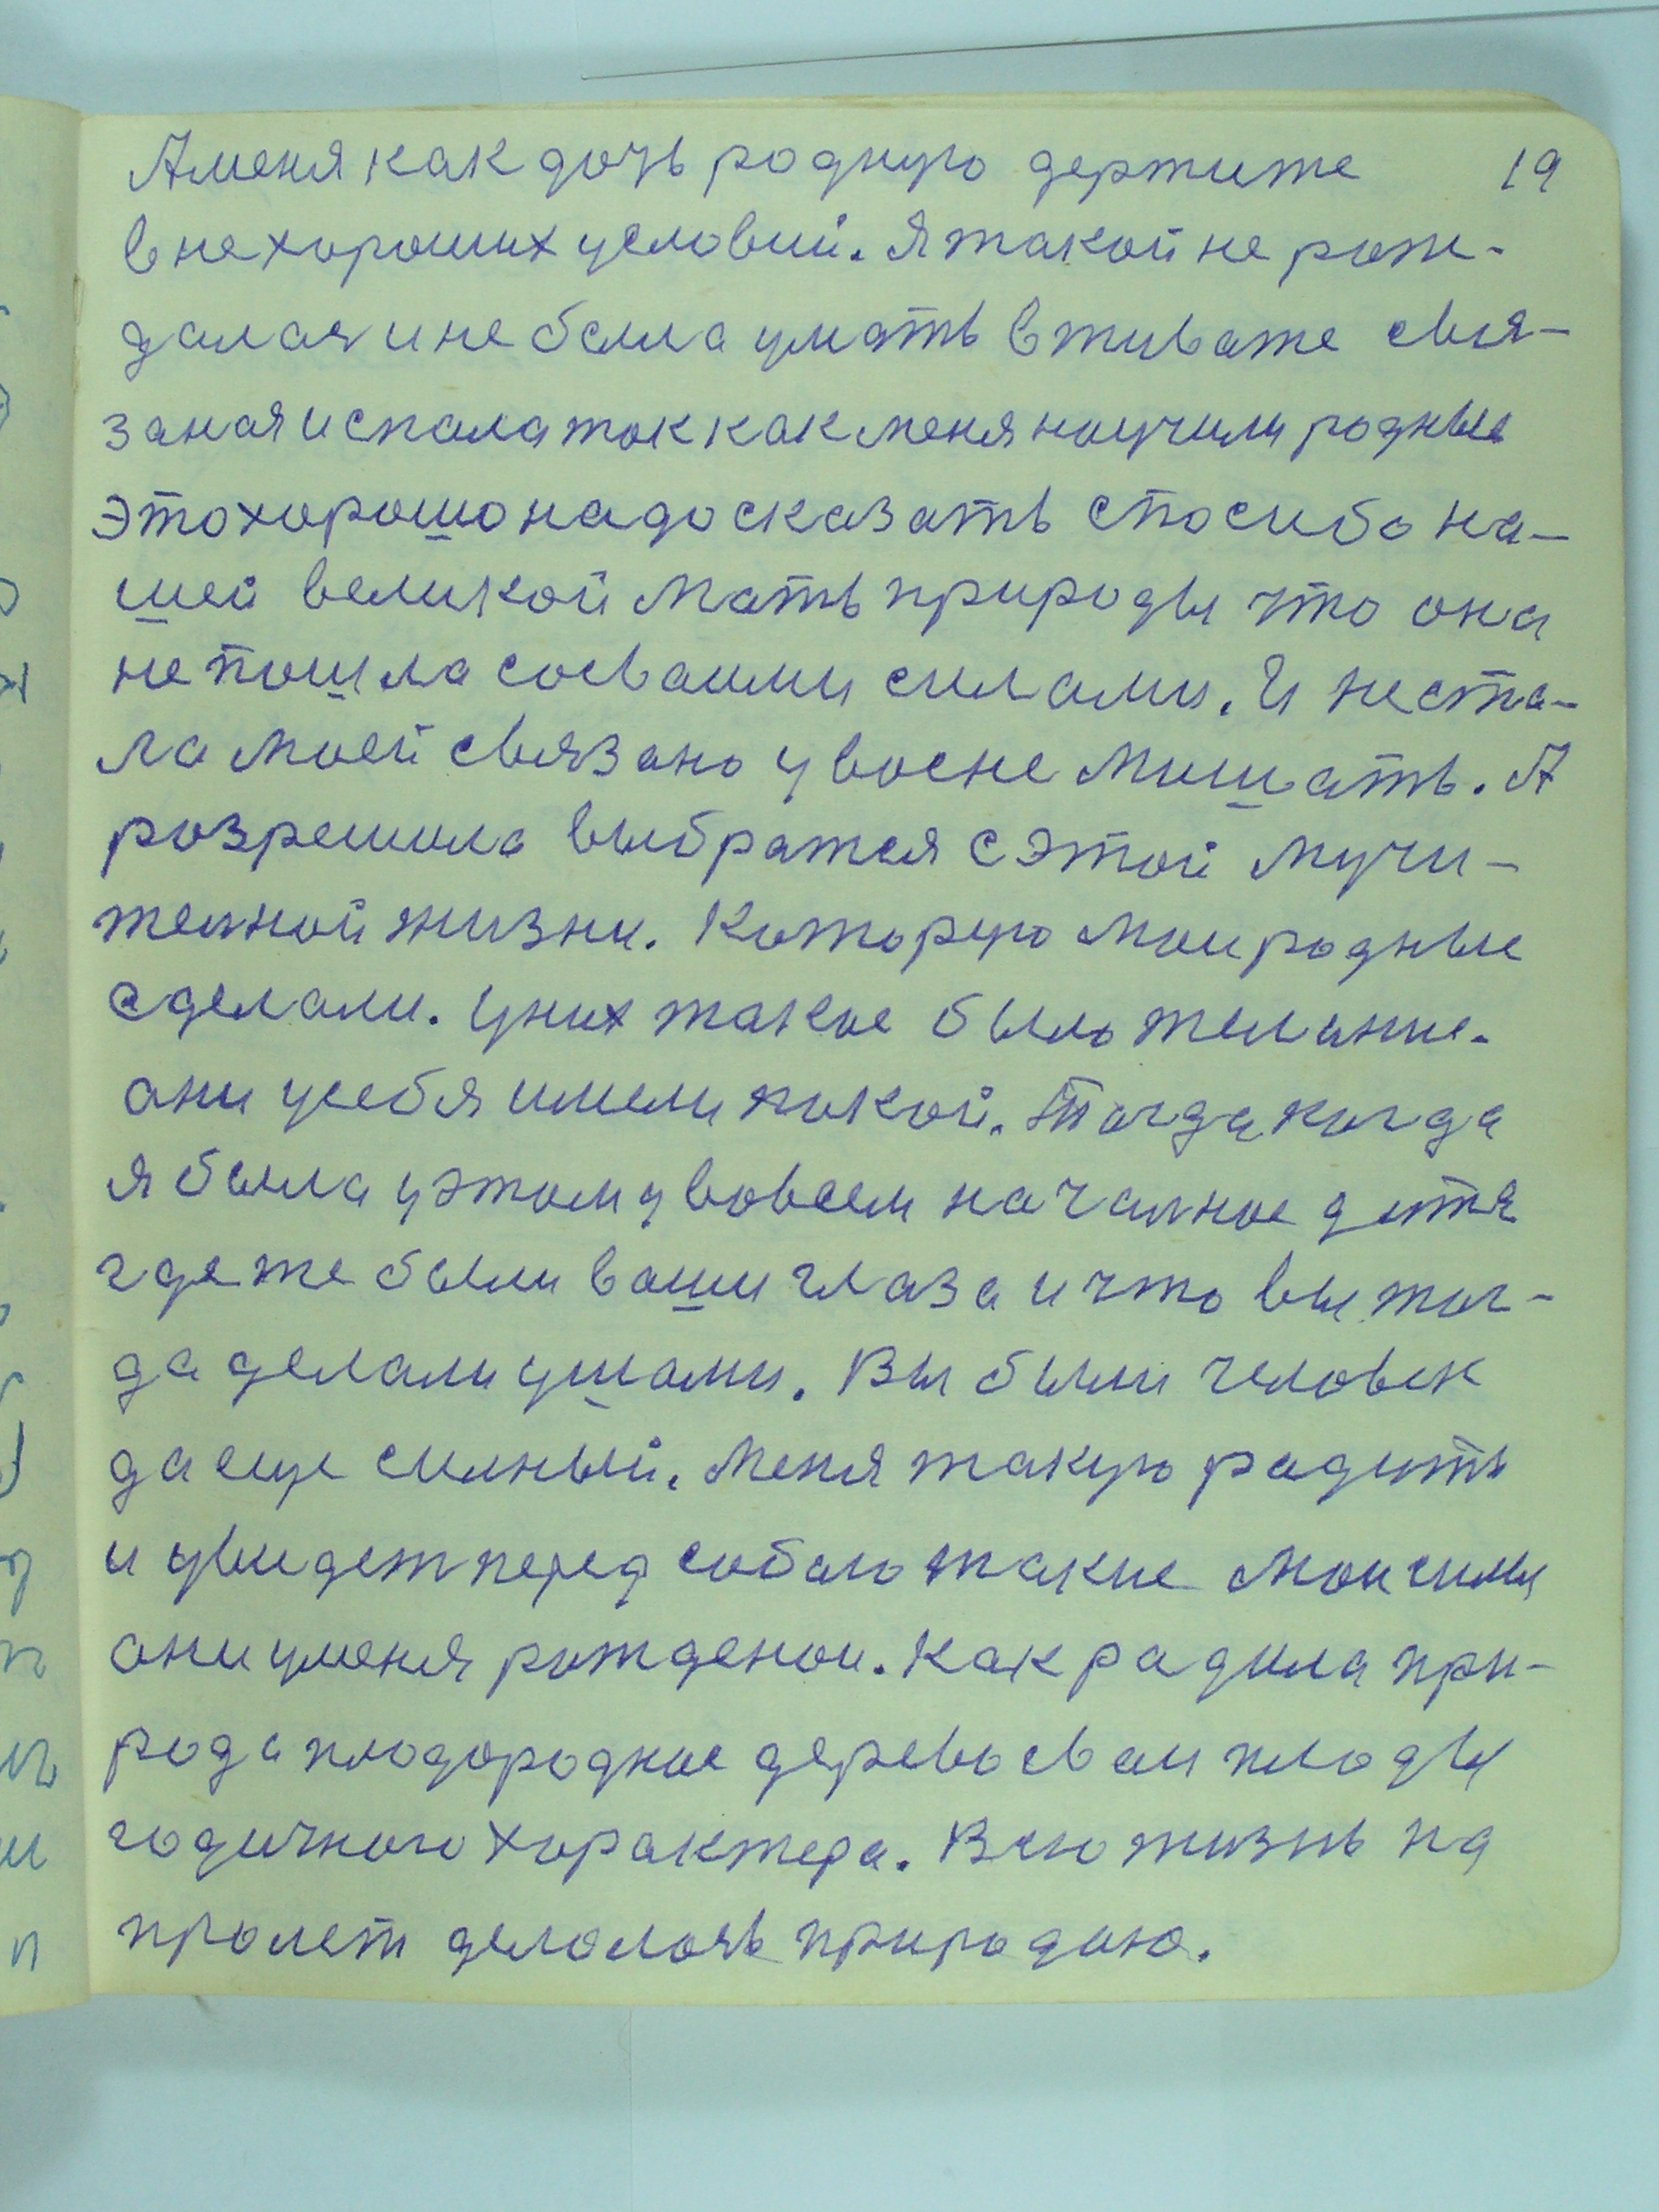 А меня как дочь родную держите 19
в не хороших условий. Я такой не рож-
далая и не была умать в тивате свя-
заная и спала ток как меня научили родные
это хорошо надо сказать спосибо на-
шей великой Мать природы что она
не пошла сосвоими силами. И не ста-
ла моей связано у восне Мишать. А
розрешила выбратся с этой мучи-
телной жизни. Которую мои родные
сделали. У них такое было желание.
они у себя имели покой. Тогда когда
я была у этом у вовсем началное дитя
где же были ваши глаза и что вы тог-
да делали ушами. Вы были человек
да еще силный. Меня такую радить
и увидет перед собою такие мои силы
они у меня рожденои. Как радила при-
рода плодородное дерево свои плоды
годичного характера. Всю жизнь на
пролет делолось природою.